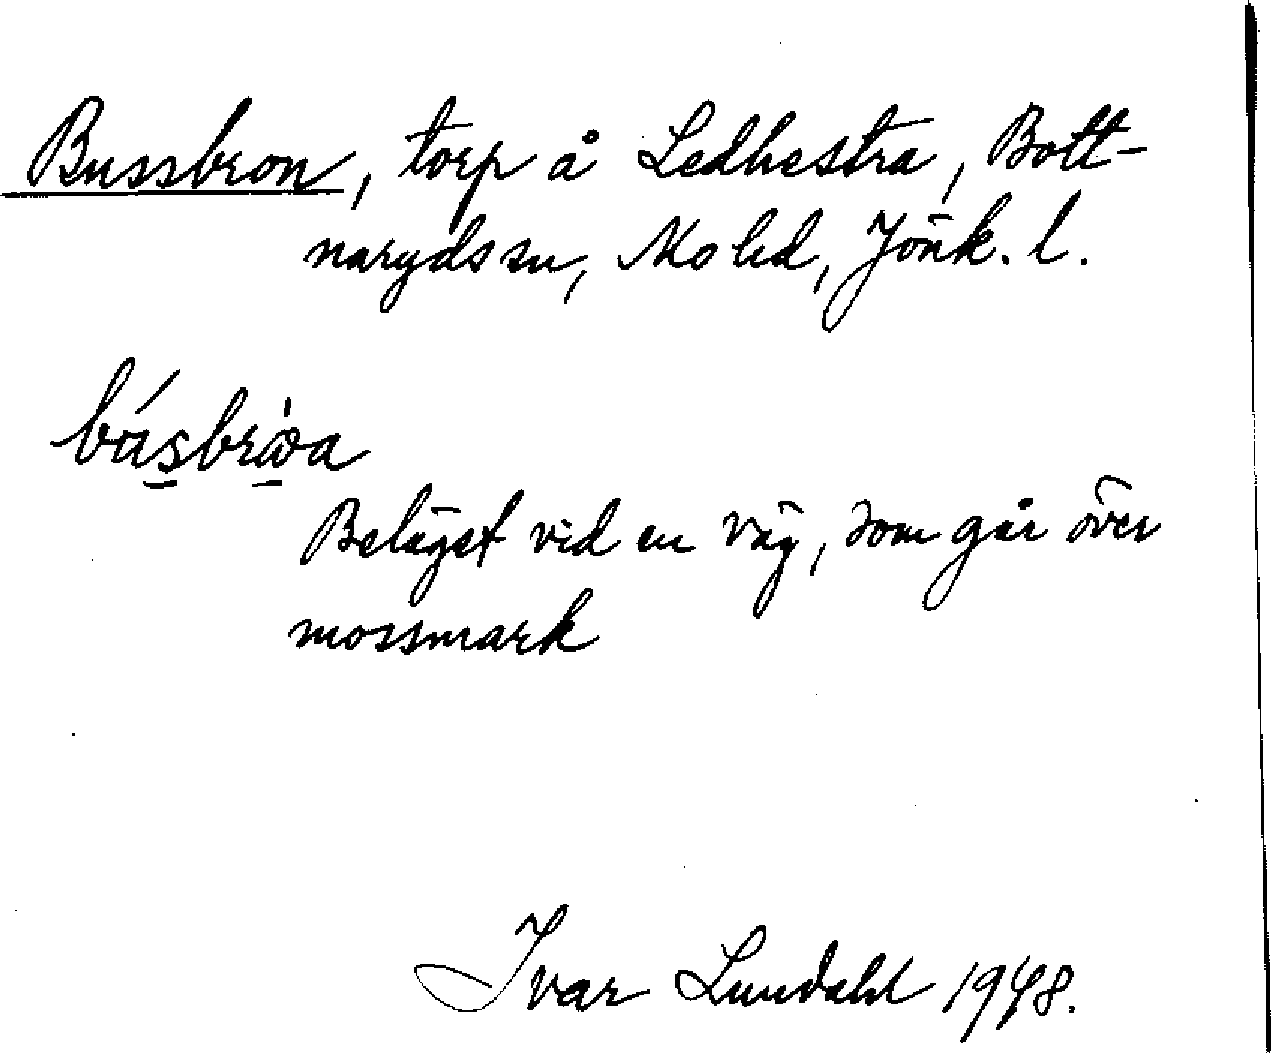 Bussbron, torp å Ledhestra, Bott-
narydssn, Mo hd, Jönk. l.
Beläget vid en väg, som går över
mossmark
Ivar Lundahl 1948.